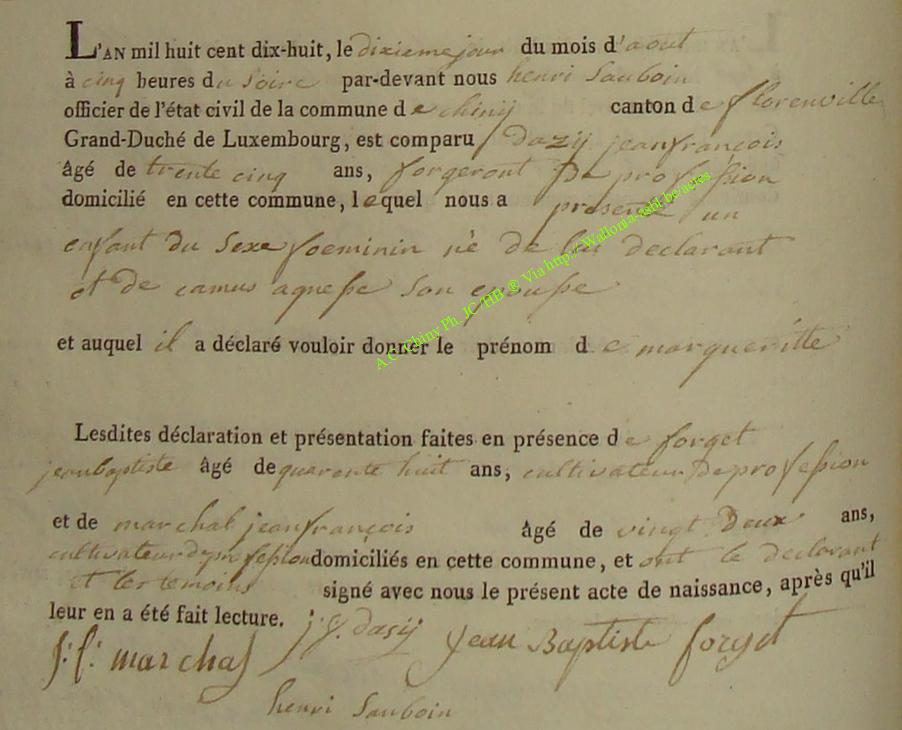 L'AN mil huit cent dix-huit, le dixieme jour du mois d'aout
à cinq heures du soire par-devant nous henri Sauboin
officier de l'état civil de la commune de chinÿ canton de florenville
Grand-Duché de Luxembourg, est comparu dazij jeanfrançois
âgé de trente cinq ans, forgeront De profession
domicilié en cette commune, lequel nous a présenté un
enfant du Sexe foeminin né De lui déclarant
et de camus agnesse Son epousse
et auquel il a déclaré vouloir donner le prénom de margueritte
Lesdites déclaration et présentation faites en présence de forget
jeanbaptiste âgé de quarente huit ans, cultivateur De profession
et de marchal jeanfrançois âgé de vingt Deux ans,
cultivateur De profession domiciliés en cette commune, et ont le déclarant
et les temoins signé avec nous le présent acte de naissance, après qu'il
leur en a été fait lecture.
j: f: marchal j. f. dasij jean Baptiste forget
henri Sauboin
A.C. Chiny Ph. JC HB @ Via http://Wallonia-asbl.be/actes